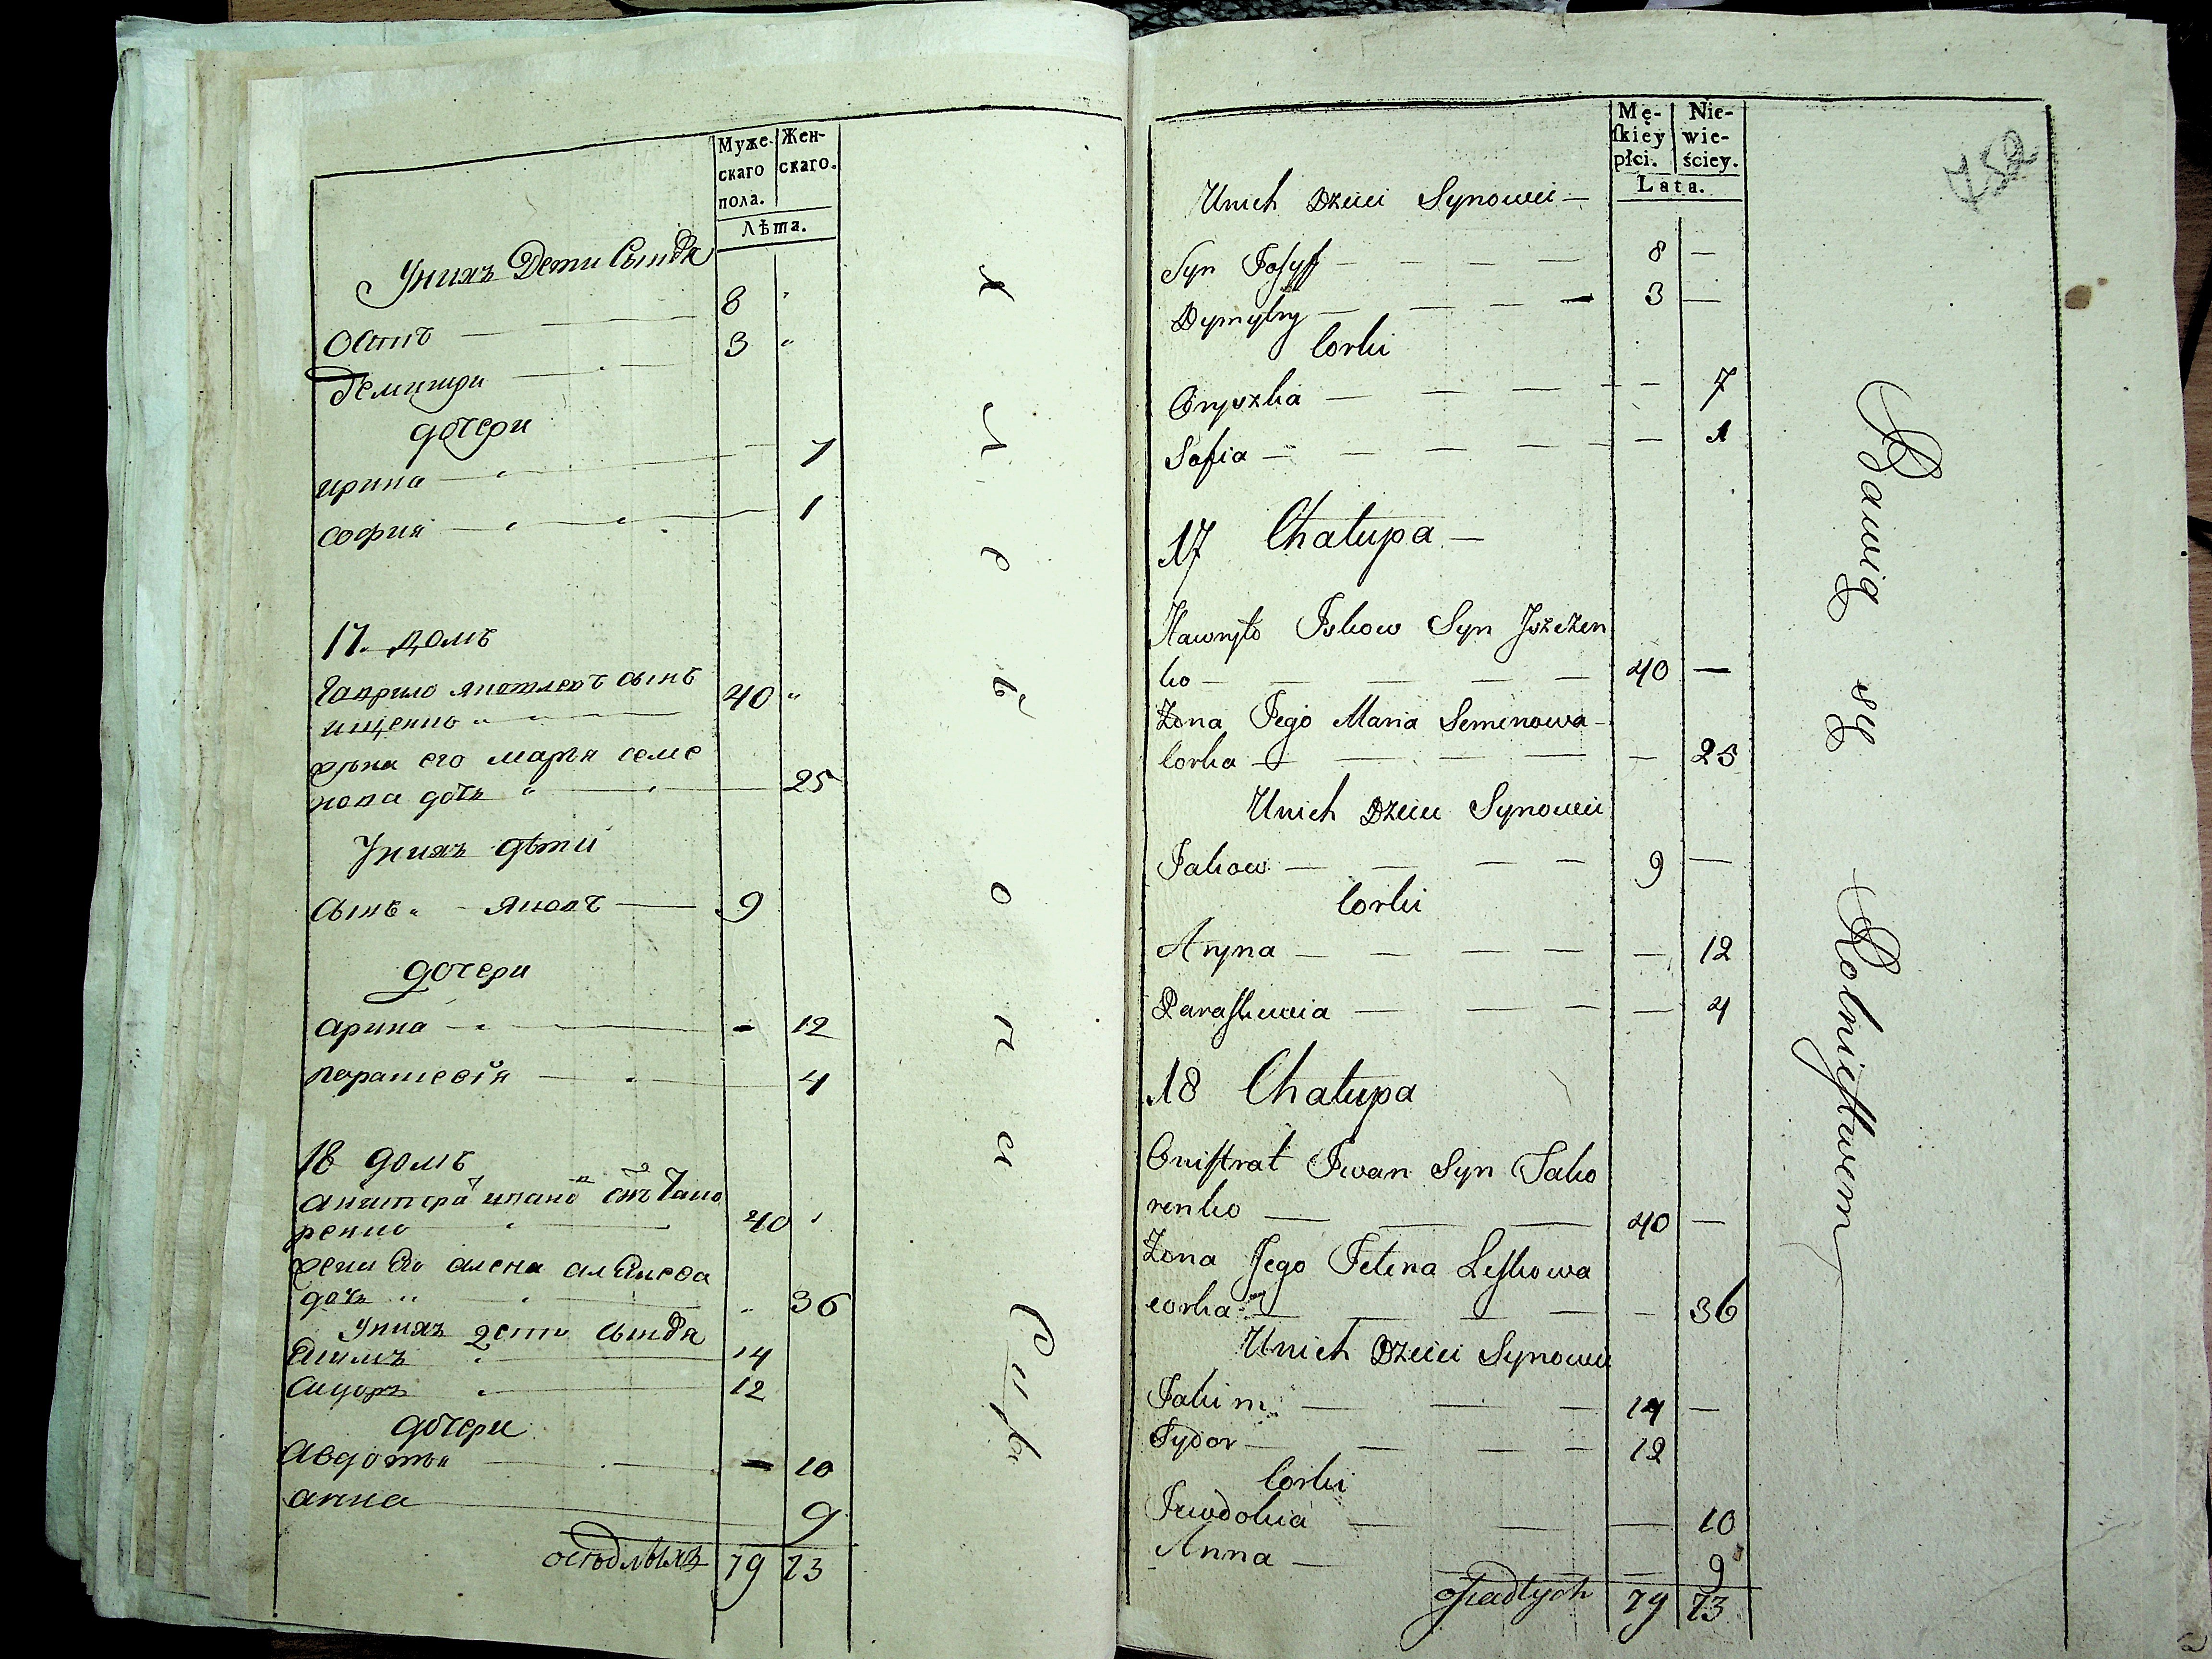 Муже-
скаго
пола.
Жен-
скаго.
Лѣта.
Унихъ Дети Сынвя
Осипъ 8
Демитри 3
дочери
ирина 7
софия 1
17. домъ
Гаврило яковлевъ сынъ
ищенко 40
жена его марья семе
нова дочь 25
Унихъ дѣти
Сынъ яковъ 9
дочери
арина 12
парашевія 4
18 домъ
ренко 40
жена Его алена
дочь 36
Унихъ дети Сынвя
Екимъ 14
Сидоръ 12
дочери
Авдотья 10
анна 9
оседлыхъ 79 73
хлебопа
Mę-
ſkiey
płci.
Nie-
wie-
ściey.
Lata.
152
Unich Dzieci Synowei
Syn Josyff 8
Dymytry 3
Corki
Oryszka 7
Sofia 1
17 Chałupa
Hawryło Jskow Syn Jszczen
ko 40
Żona Jego Maria Semenowa
Corka 25
Unich Dzieci Synowei
Jakow 9
Corki
Aryna 12
Paraskewia 4
18 Chałupa
Onistrat Jwan Syn Tako
renko 40
Żona Jego Fetena Leskowa
corka 36
Unich Dzieci Synowei
Jakim 14
Sydor 12
Corki
Jewdokia 10
Anna 9
osiadłych 79 73
Bawią się Rolnictwem